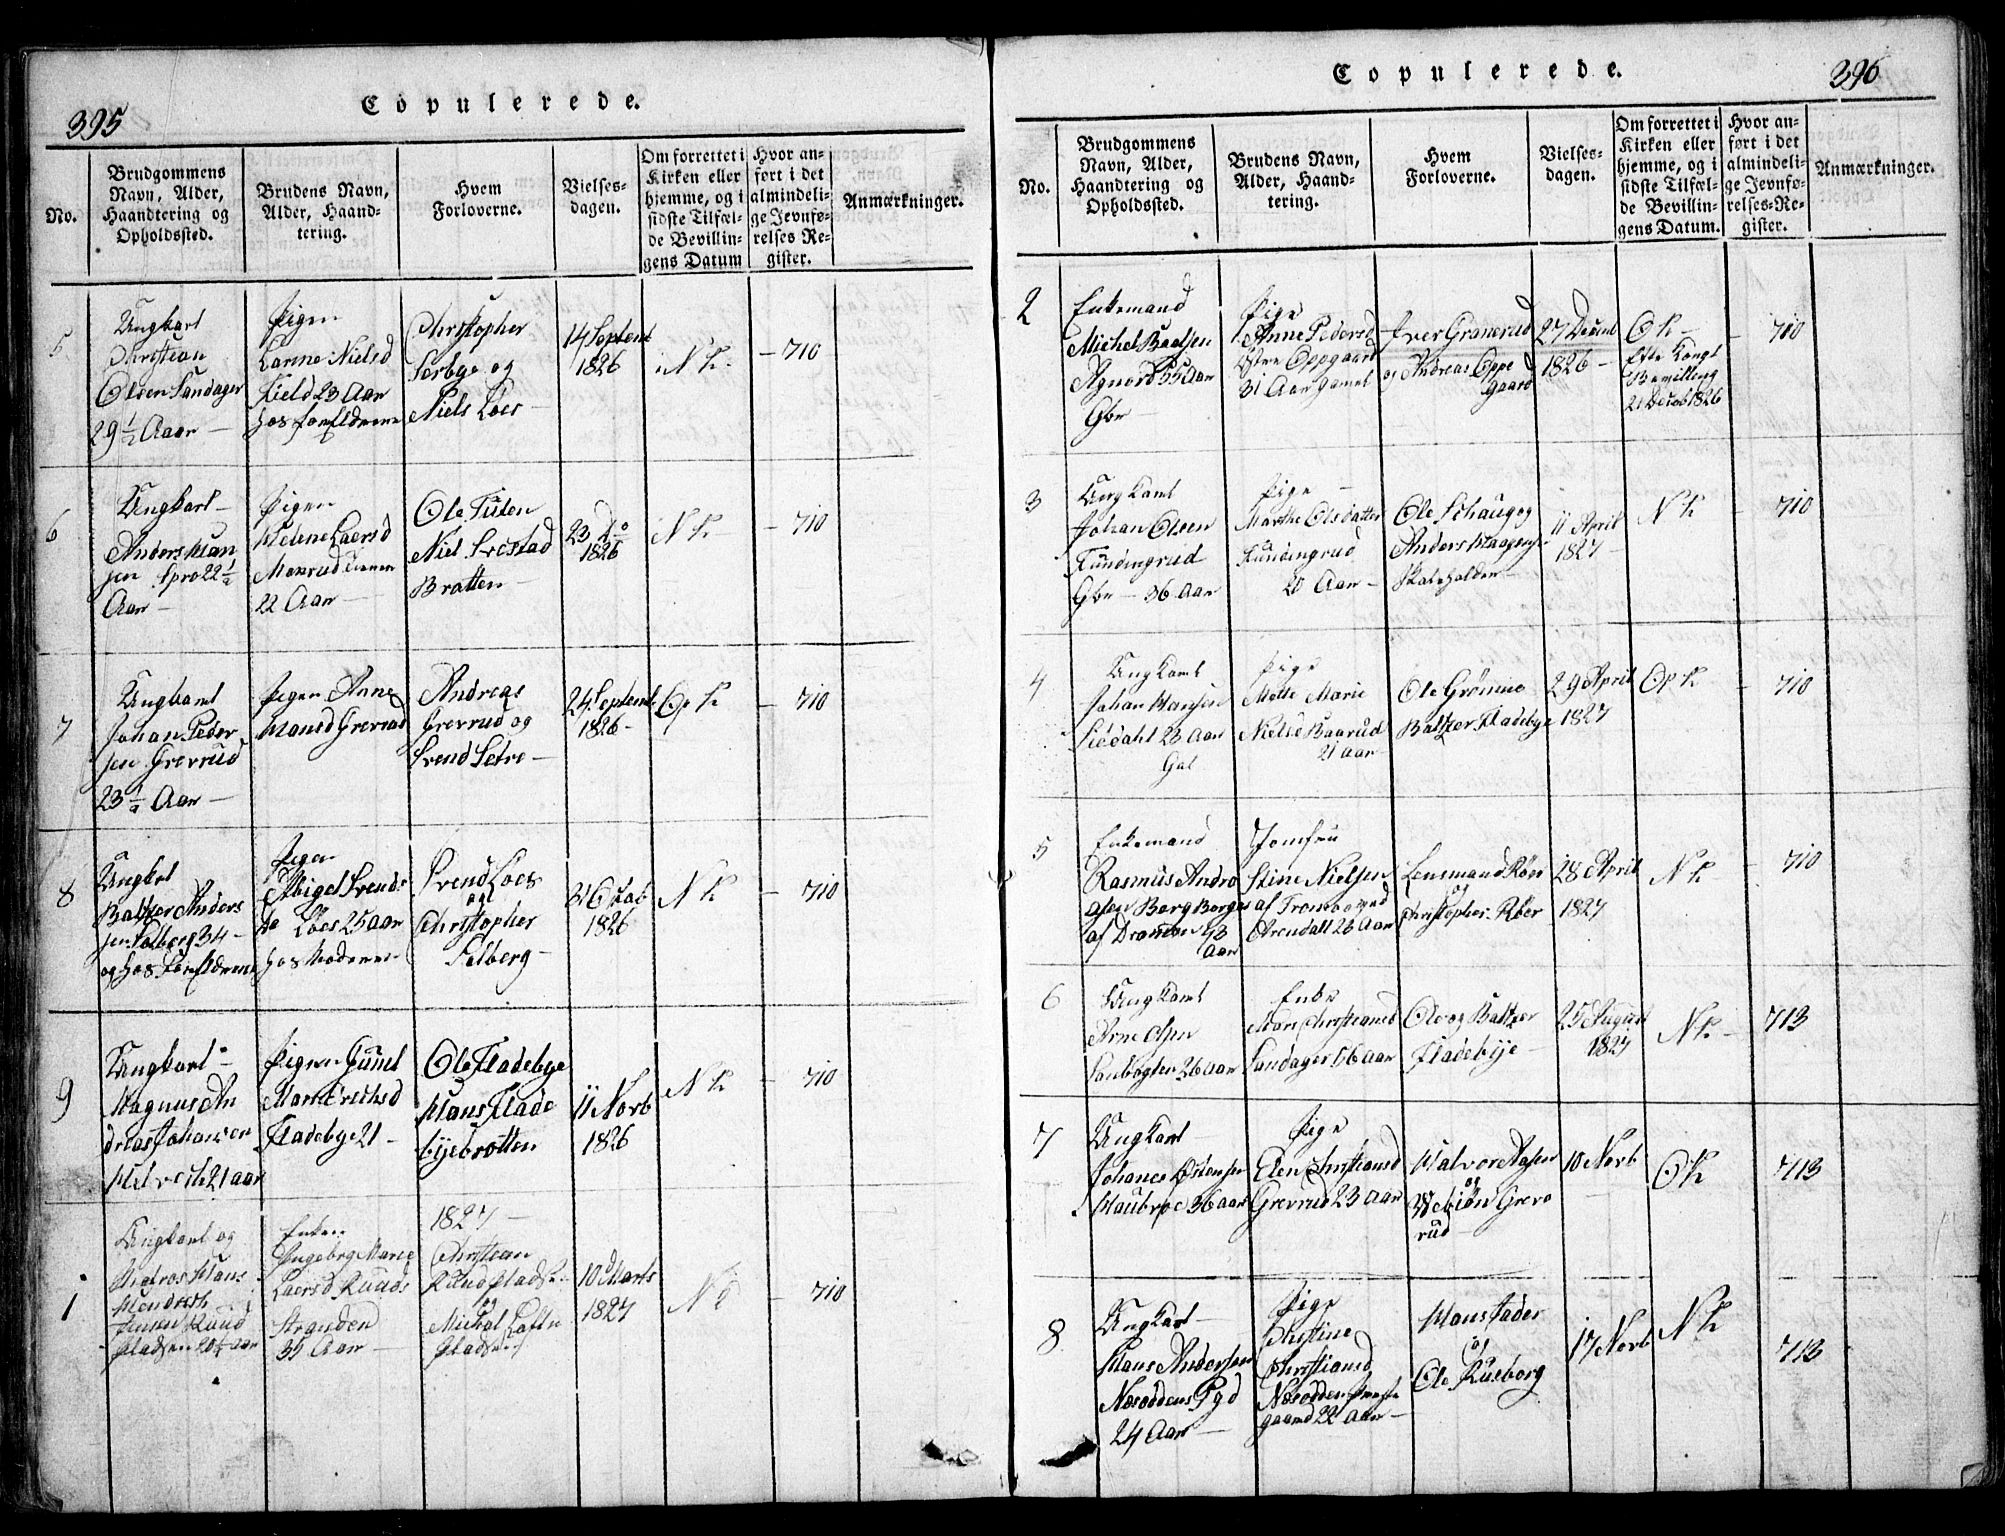 395
Copulerede.
No.
Brudgommens
Navn, Alder,
Haandtering og
Opholdssted.
Brudens Navn,
Alder, Haand-
tering.
Hvem
Forloverne.
Vielses-
dagen.
Om forrettet i
Kirken eller
hjemme, og i
sidste Tilfæl-
de Bevillin-
gens Datum
Hvor an-
ført i det
almindeli-
ge Jevnfø-
relses Re-
gister.
Anmærkninger.
5
Ungkarl
Christian
Olsen Sandager
29 1/2 Aar
Pigen
Karine Nielsd
23 Aar
hos Forældrene
Christopher
Sørbye og
Niels Loes
14 Septemb
1826
N K
710
6
Ungkarl
Anders Han
sen Spro 22 1/2
Aar
Pigen
Helene Laersd
22 Aar
Ole Tusen
Niel Svestad
Bratten
23 do
1826
N K
710
7
Ungkarl
Johan Peder
sen Grevrud
23 1/2 Aar
Pigen Anne
Hansd Grevrud
Andreas
Grevrud og
Svend Setre
24 Septemb
1826
Op K
710
8
Ungkarl
Baltzer Anders
sen Solberg 34
og hos Forældrene
Pigen
Abigel Svends
da Loes 25 aar
hos Moderen
Svend Loes
og
Christopher
Solberg
Octob
1826
N K
710
9
Ungkarl
Magnus An
dreas Johansen
21 aar
Pigen Gunil
Marie
Fladebye 21
Ole Fladebye
Hans Flade
byebrotten
11 Novb
1826
N K
710
1
Ungkarl og
Matros Hans
Hendrich
Jensen Ruud
pladsen 20 1/2 aar
Enken
Ingeborg Marie
Laersd Ruuds
Stranden
35 Aar
1827
Christian
Ruud Pladsen
og
Michel
Pladsen
10 Marts
1827
N K
710
396
Copulerede.
No.
Brudgommens
Navn, Alder,
Haandtering og
Opholdssted.
Brudens Navn,
Alder, Haand-
tering.
Hvem
Forloverne.
Vielses-
dagen.
Om forrettet i
Kirken eller
hjemme, og i
sidste Tilfæl-
de Bevillin-
gens Datum.
Hvor an-
ført i det
almindeli-
ge Jevnfø-
relses-Re-
gister.
Anmærkninger.
2
Enkemand
Michel
Agnord 55 Aar
Gbr
Pige
Anne Pedersd
Øvre Oppgaard
31 Aar gamel
Iver Granerud
og Andreas Oppe
gaard
27 Decemb
1826
O K
Efter Kongl
Bevilling
21 Deceb 1826
710
3
Ungkarl
Johan Olsen
Kundingrud
Gbr 36 Aar
Pige
Marthe Olsdatter
Kundingrud
20 Aar
Ole Schaug og
Anders Haagensen
11 April
1827
N K
710
4
Ungkarl
Johan Hansen
23 Aar
Gal
Pige
Mette Marie
Nielsd Baarud
21 aar
Ole Grønmo
Baltzer Fladebye
29 April
1827
Op K
710
5
Enkemand
Rasmus Andre
asen Berg Borger
af Dramen 43
Aar
Jomfru
Stine Nielsen
af Tromøe ved
Arendall 28 Aar
Lensmand Røer
og
Christopher Røer
28 April
1827
N K
710
6
Ungkarl
Arne Olsen
26 aar
Enke
Mari Christiansd
Sandager 56 aar
Ole og Baltzer
Fladebye
25 August
1827
N K
713
7
Ungkarl
Johanes Østensen
Haubroe 36 aar
Pige
Elen Christiansd
Grevrud 23 aar
Halvor Aasen
og
Vebiøn Grev
rud
10 Novb
O K
713
8
Ungkarl
Hans Andersen
Næsoddens Pgd
24 Aar
Pige
Christine
Christiansd
Næsodden Præste
gaard 22 Aar
Hans Jader
og
Ole Rueborg
17 Novb
N K
713